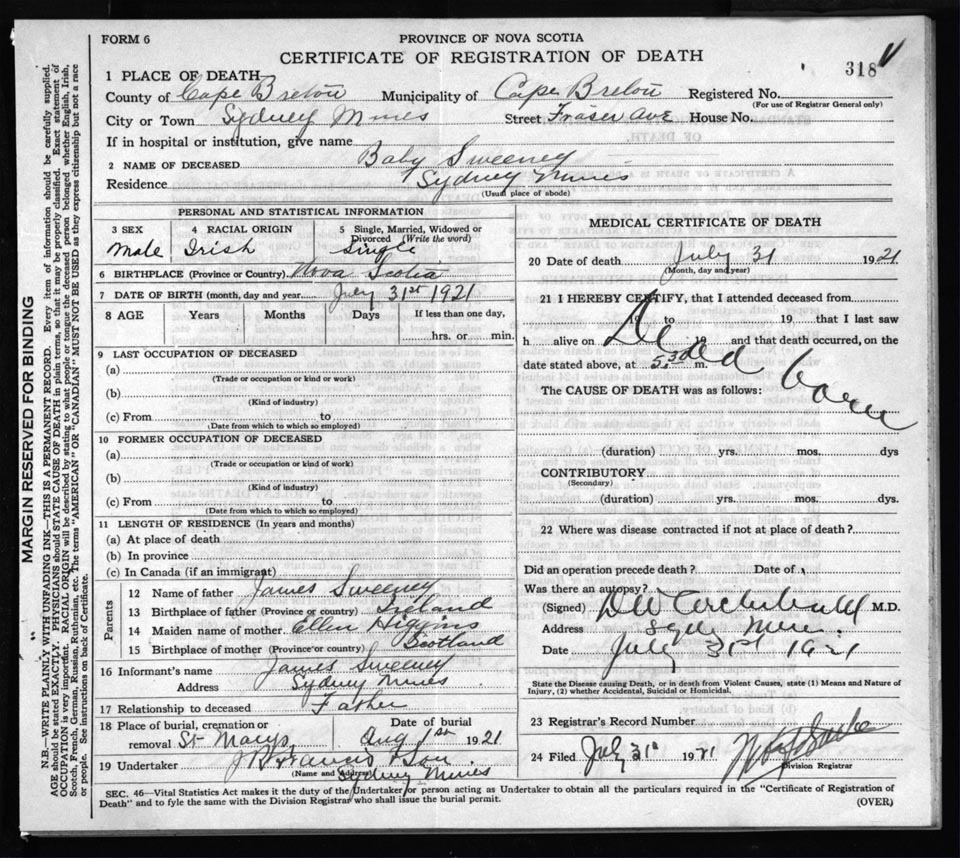 FORM 6
PROVINCE OF NOVA SCOTIA
CERTIFICATE OF REGISTRATION OF DEATH
318
1 PLACE OF DEATH
County of Cape Breton Municipality of Cape Breton Registered No.
(For use of Registrar General only)
City or Town Sydney Mines Street Fraser Ave House No.
If in hospital or institution, give name
2 NAME OF DECEASED Baby Sweeney
Residence Sydney Mines
(Usual place of abode)
PERSONAL AND STATISTICAL INFORMATION
3 SEX 4 RACIAL ORIGIN 5 Single, Married, Widowed or Divorced (Write the word)
Male Irish Single
6 BIRTHPLACE (Province or Country) Nova Scotia
7 DATE OF BIRTH (month, day and year July 31st 1921
8 AGE Years Months Days If less than one day,
hrs. or min.
9 LAST OCCUPATION OF DECEASED
(a)
(Trade or occupation or kind or work)
(b)
(Kind of industry)
(c) From to
(Date from which to which so employed)
10 FORMER OCCUPATION OF DECEASED
(a)
(Trade or occupation or kind of work)
(b)
(Kind of industry)
(c) From to
(Date from which to which so employed)
11 LENGTH OF RESIDENCE (In years and months)
(a) At place of death
(b) In province
(c) In Canada (if an immigrant)
Parents
12 Name of father James Sweeney
13 Birthplace of father (Province or country) Ireland
14 Maiden name of mother Ellen Higgins
15 Birthplace of mother (Province or country) Scotland
16 Informant's name James Sweeney
Address Sydney Mines
17 Relationship to deceased Father
18 Place of burial, cremation or Date of burial
removal St Marys Aug 1st 1921
19 Undertaker & Son
(Name and Address) Sydney Mines
MEDICAL CERTIFICATE OF DEATH
20 Date of death July 31 1921
(Month, day and year)
21 I HEREBY CERTIFY, that I attended deceased from
19 to 19 that I last saw
h alive on 19 and that death occurred, on the
date stated above, at 5.30 m.
Dead born
The CAUSE OF DEATH was as follows:
(duration) yrs. mos. dys
CONTRIBUTORY
(Secondary)
(duration) yrs. mos. dys.
22 Where was disease contracted if not at place of death?
Did an operation precede death? Date of
Was there an autopsy?
(Signed) M.D.
Address Sydney Mines
Date July 31st 1921
State the Disease causing Death, or in death from Violent Causes, state (1) Means and Nature of Injury, (2) whether Accidental, Suicidal or Homicidal.
23 Registrar's Record Number
24 Filed July 31st 1921
Division Registrar
SEC. 46—Vital Statistics Act makes it the duty of the Undertaker or person acting as Undertaker to obtain all the particulars required in the "Certificate of Registration of
Death" and to fyle the same with the Division Registrar who shall issue the burial permit.
(OVER)
MARGIN RESERVED FOR BINDING
N.B.—WRITE PLAINLY WITH UNFADING INK—THIS IS A PERMANENT RECORD. Every item of information should be carefully supplied.
AGE should be stated EXACTLY. PHYSICIANS should STATE CAUSE OF DEATH in plain terms, so that it may be properly classified. Exact statement of
OCCUPATION is very important. RACIAL ORIGIN will be described by stating to what people or tongue the deceased person belonged whether English, Irish,
Scotch, French, German, Russian, Ruthenian, etc. The terms "AMERICAN" OR "CANADIAN" MUST NOT BE USED as they express citizenship but not a race
or people. See instructions on back of Certificate.